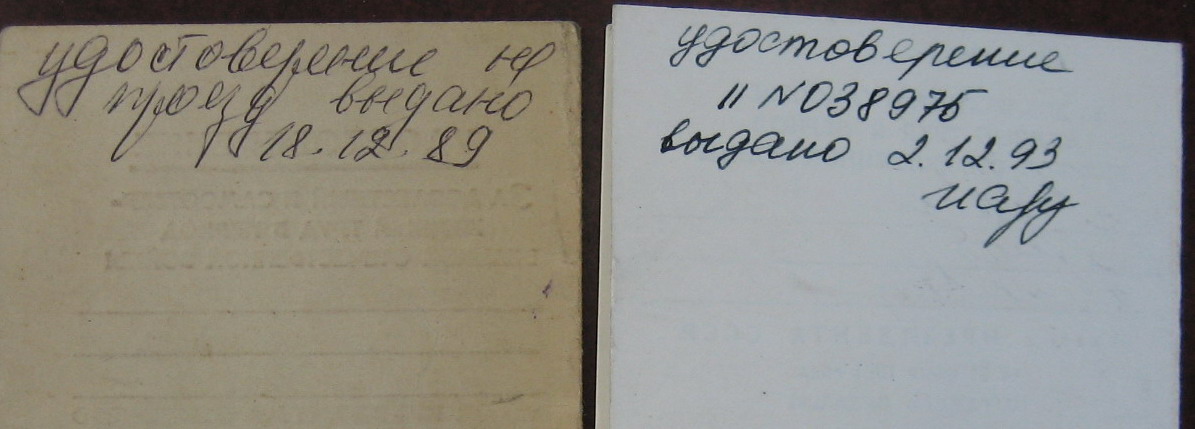 удостоверение на
проезд выдано
18.12.89
удостоверение
II №038975
выдано 2.12.93